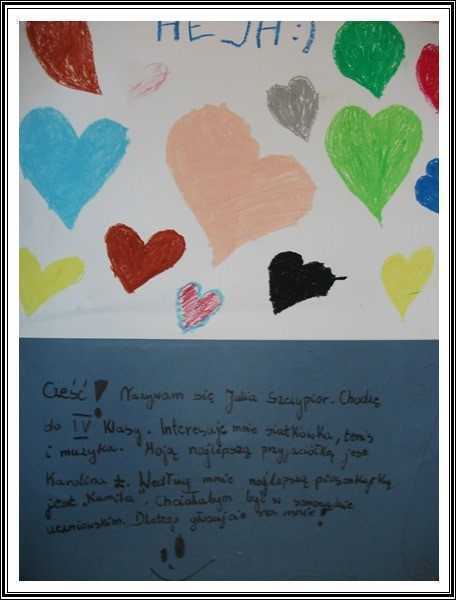 HEJA :)
Cześć! Nazywam się Julia Szczypior. Chodzę
do IV klasy. Interesuję mnie siatkówka, tenis
i muzyka. Moją najlepszą przyjaciółką jest
Karolina ż. Według mnie najlepszą piosenkarką
jest „Kamila". Chciałabym być w samorządzie
uczniowskim. Dlatego głosujcie na mnie!